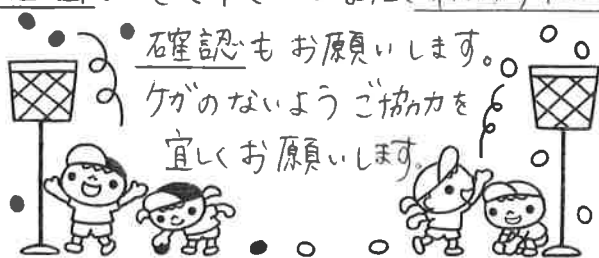 確認もお願いします。
ケガのないようご協力を
宜しくお願いします。